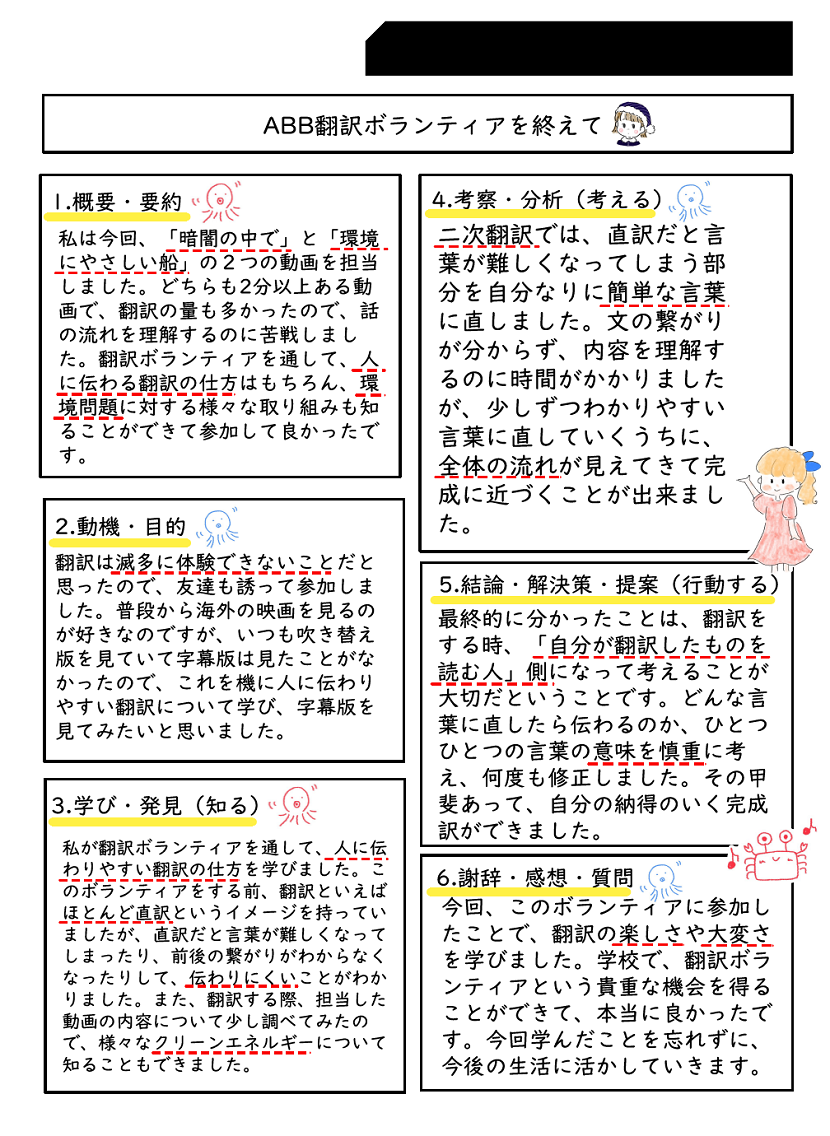 ABB翻訳ボランティアを終えて
1.概要・要約
私は今回、「暗闇の中で」と「環境
にやさしい船」の２つの動画を担当
しました。どちらも2分以上ある動
画で、翻訳の量も多かったので、話
の流れを理解するのに苦戦しまし
た。翻訳ボランティアを通して、人
に伝わる翻訳の仕方はもちろん、環
境問題に対する様々な取り組みも知
ることができて参加して良かったで
す。
2.動機・目的
翻訳は滅多に体験できないことだと
思ったので、友達も誘って参加しま
した。普段から海外の映画を見るの
が好きなのですが、いつも吹き替え
版を見ていて字幕版は見たことがな
かったので、これを機に人に伝わり
やすい翻訳について学び、字幕版を
見てみたいと思いました。
3.学び・発見（知る）
私が翻訳ボランティアを通して、人に伝
わりやすい翻訳の仕方を学びました。こ
のボランティアをする前、翻訳といえば
ほとんど直訳というイメージを持ってい
ましたが、直訳だと言葉が難しくなって
しまったり、前後の繋がりがわからなく
なったりして、伝わりにくいことがわか
りました。また、翻訳する際、担当した
動画の内容について少し調べてみたの
で、様々なクリーンエネルギーについて
知ることもできました。
4.考察・分析（考える）
二次翻訳では、直訳だと言
葉が難しくなってしまう部
分を自分なりに簡単な言葉
に直しました。文の繋がり
が分からず、内容を理解す
るのに時間がかかりました
が、少しずつわかりやすい
言葉に直していくうちに、
全体の流れが見えてきて完
成に近づくことが出来まし
た。
5.結論・解決策・提案（行動する）
最終的に分かったことは、翻訳を
する時、「自分が翻訳したものを
読む人」側になって考えることが
大切だということです。どんな言
葉に直したら伝わるのか、ひとつ
ひとつの言葉の意味を慎重に考
え、何度も修正しました。その甲
斐あって、自分の納得のいく完成
訳ができました。
6.謝辞・感想・質問
今回、このボランティアに参加し
たことで、翻訳の楽しさや大変さ
を学びました。学校で、翻訳ボラ
ンティアという貴重な機会を得る
ことができて、本当に良かったで
す。今回学んだことを忘れずに、
今後の生活に活かしていきます。